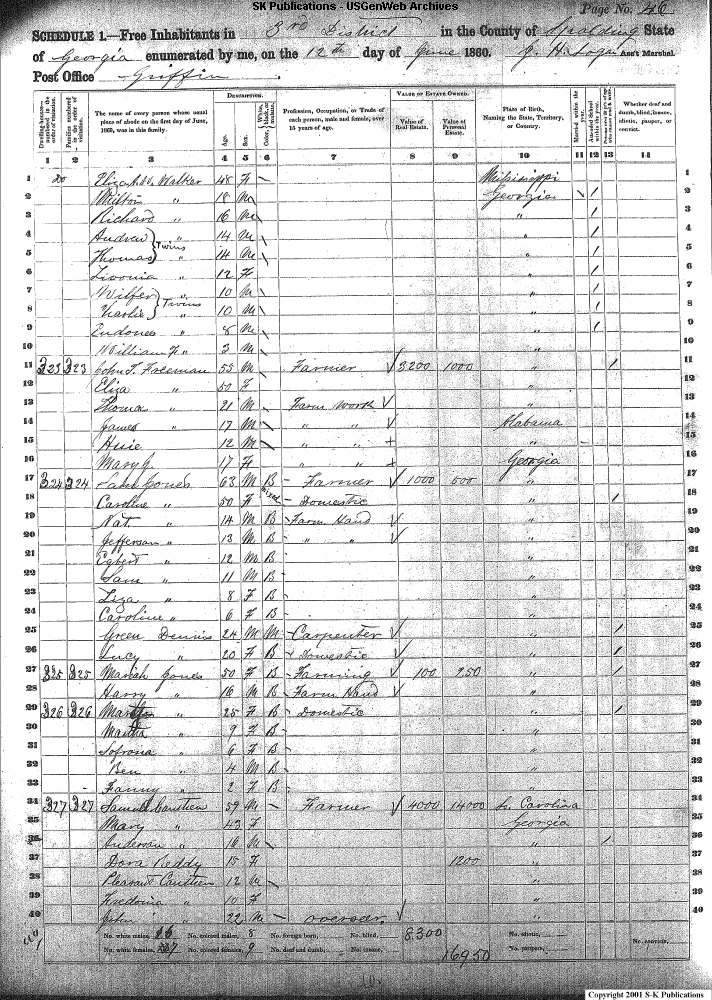 SK Publications - USGenWeb Archives
Page No. 46
SCHEDULE 1.—Free Inhabitants in 3rd District in the County of Spalding State
of Georgia enumerated by me, on the 12th day of June 1860. J. H. Logan Ass't Marshal.
Post Office Griffin
Dwelling-houses—numbered in the order of visitation. Families numbered in the order of visitation. The name of every person whose usual place of abode on the first day of June, 1860, was in this family. DESCRIPTION. Age. Sex. Color, White, black, or mulatto. Profession, Occupation, or Trade of each person, male and female, over 15 years of age. VALUE OF ESTATE OWNED. Value of Real Estate. Value of Personal Estate. Place of Birth, Naming the State, Territory, or Country. Married within the year. Attended School within the year. Whether deaf and dumb, blind, insane, idiotic, pauper, or convict.
1 2 3 4 5 6 7 8 9 10 11 12 13 14
1 Walker 48 F \ Mississippi 1
2 Milton " 18 M \ Georgia \ / 2
3 Richard " 16 M \ " / 3
4 Andrew } Twins " 14 M \ " / 4
5 Thomas " 14 M \ " / 5
6 Livonia " 12 F " / 6
7 " 10 M \ " / 7
8 Charlie } Twins " 10 M \ " / 8
9 " 8 M \ " / 9
10 William F. " 3 M \ " 10
11 323 323 John T. Freeman 55 M \ Farmer √ 3200 1000 " / 11
12 Eliza " 50 F " 12
13 Thomas " 21 M - Farm Work √ " 13
14 James " 17 M \ " " √ Alabama 14
15 " 12 M \ " " + " 15
16 Mary J. " 17 F " " + Georgia 16
17 324 324 Sam Jones 63 M B - Farmer √ 1000 500 " 17
18 Caroline " 50 F Mixed - Domestic " / 18
19 Nat. " 14 M B - Farm Hand √ " 19
20 Jefferson " 13 M B - " " √ " 20
21 Egbert " 12 M B - " 21
22 Sam " 11 M B - " 22
23 Liza " 8 F B - " 23
24 Caroline " 6 F B - " 24
25 Green Dennis 24 M M - Carpenter √ " / 25
26 Lucy " 20 F B Domestic √ " / 26
27 325 325 Mariah Jones 50 F B - Farming √ 100 250 " / 27
28 Harry " 16 M B - Farm Hand √ " 28
29 326 326 " 25 F B - Domestic " / 29
30 Martha " 9 F B - " 30
31 Sofrona " 6 F B - " 31
32 Ben " 4 M B - " 32
33 Fanny " 2 F B - " 33
34 327 327 Samuel 59 M - Farmer √ 4000 14000 S. Carolina 34
35 Mary " 43 F Georgia 35
36 Anderson " 16 M - " / 36
37 Dora Reddy 15 F 1200 " 37
38 Pleasant 12 M - " 38
39 Fredonia " 10 F " 39
40 John " 22 M - overseer √ " 40
No. white males, 16 No. colored males, 8 No. foreign born, No. blind, 8,300 No. idiotic,
No. white females, No. colored females, 9 No. deaf and dumb, No. insane, 16950 No. paupers, No. convicts,
Copyright 2001 S-K Publications